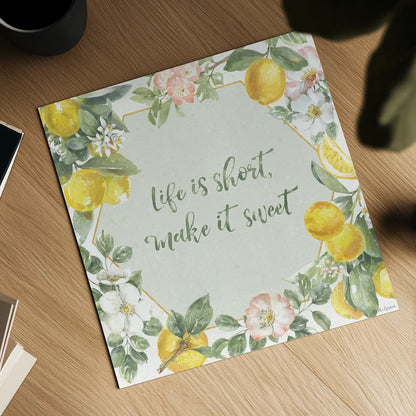 Life is short,
make it sweet